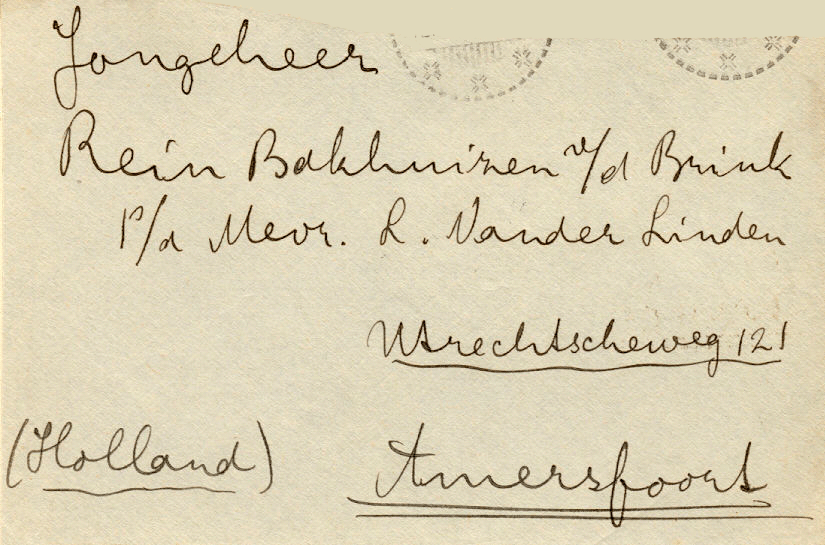 Jongeheer
Rein Bakhuizen v/d Brink
p/a Mevr. L. Van der Linden
Utrechtscheweg 121
(Holland)
Amersfoort